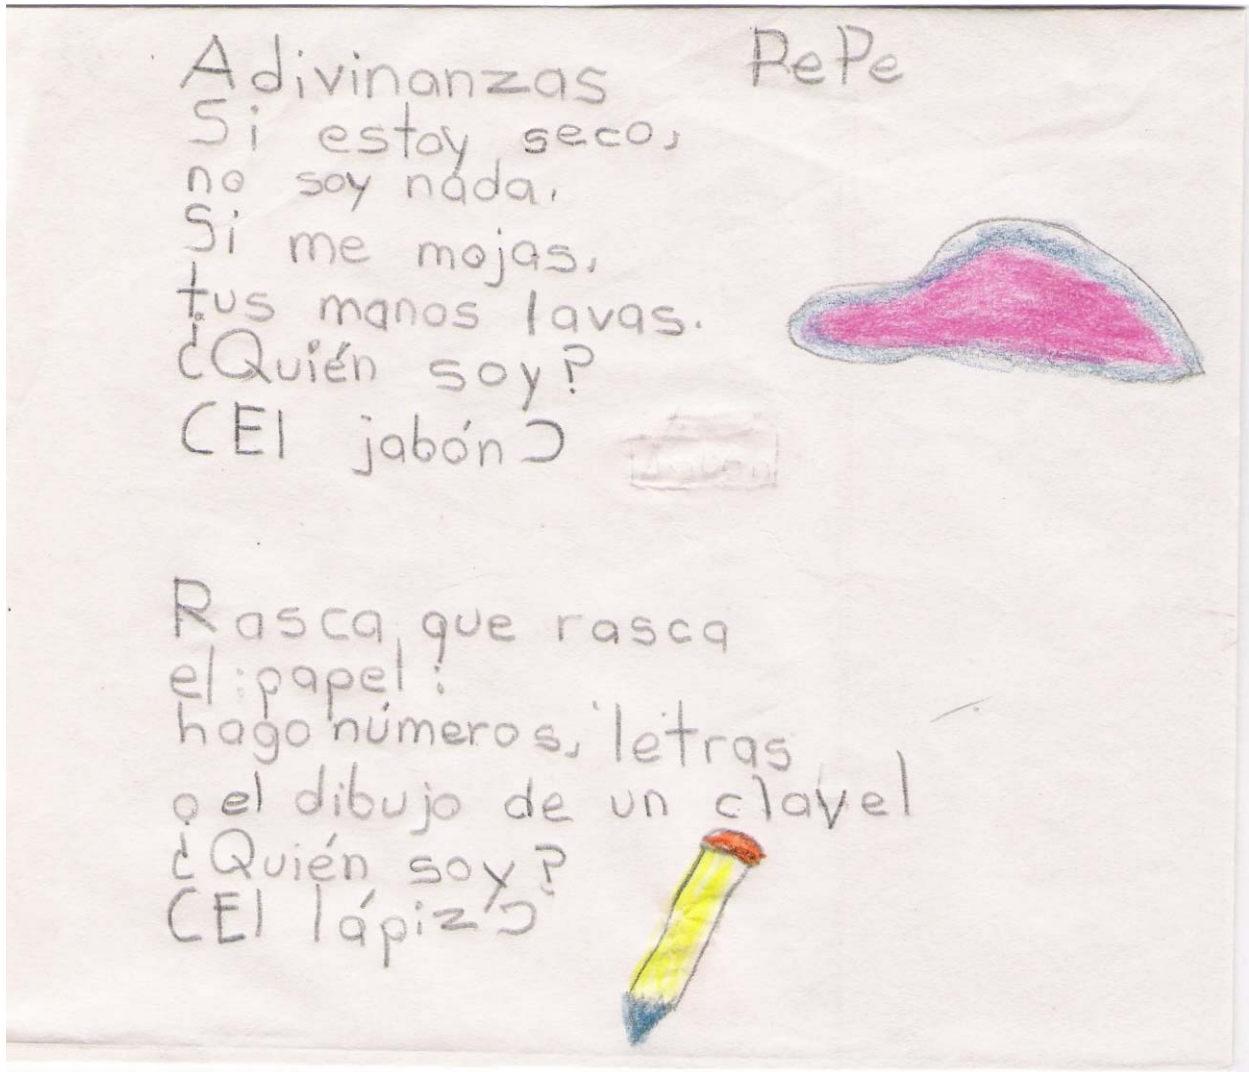 Adivinanzas PePe
Si estoy seco,
no soy nada.
Si me mojas,
tus manos lavas.
¿Quién soy?
(El jabón)
Rasca, que rasca
el papel:
hago números, letras
o el dibujo de un clavel
¿Quién soy?
(El lápiz)